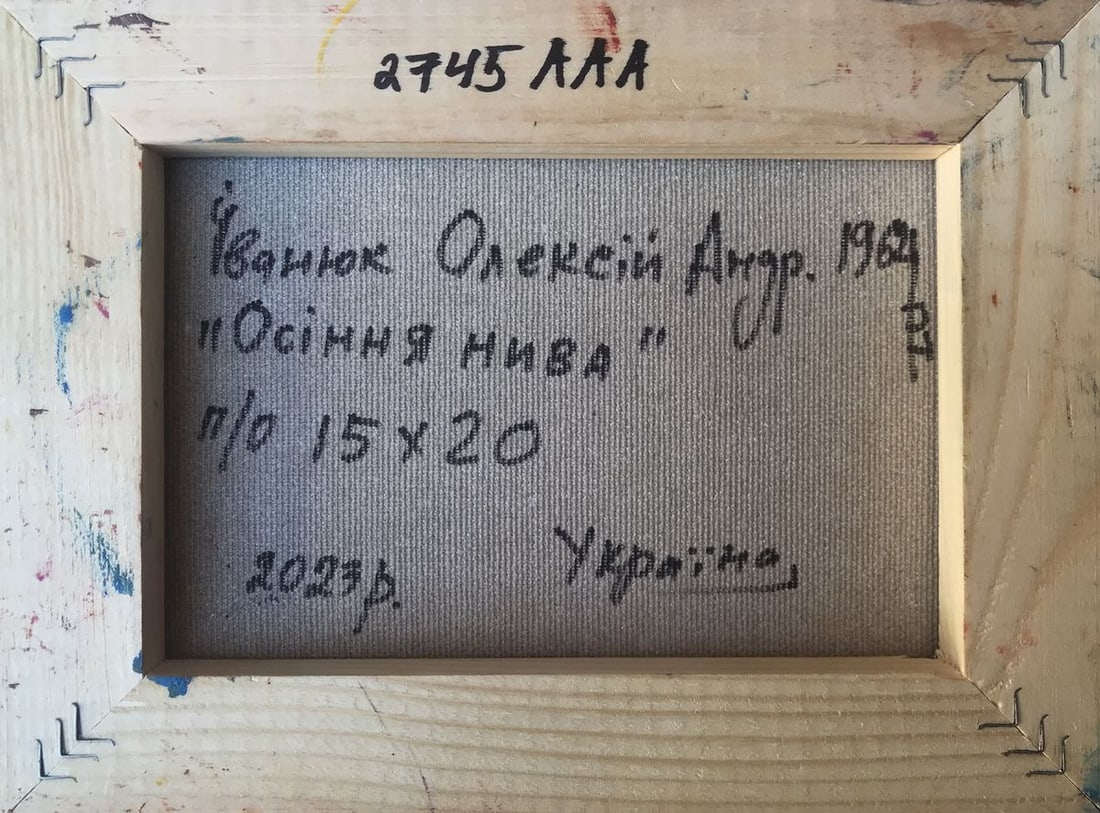 2745 AAA
Іванюк Олексій Андр. 1962
"Осіння нива"
п/о 15х20
2023р. Україна,